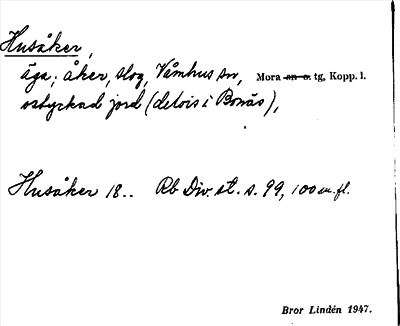 Husåker,
äga; åker, slog, Våmhus sn, Mora sn o. tg, Kopp. l.
ostyckad jord (delvis i Bonäs),
Husåker 18.. Rb Div. st. s. 99, 100 m. fl.
Bror Lindén 1947.